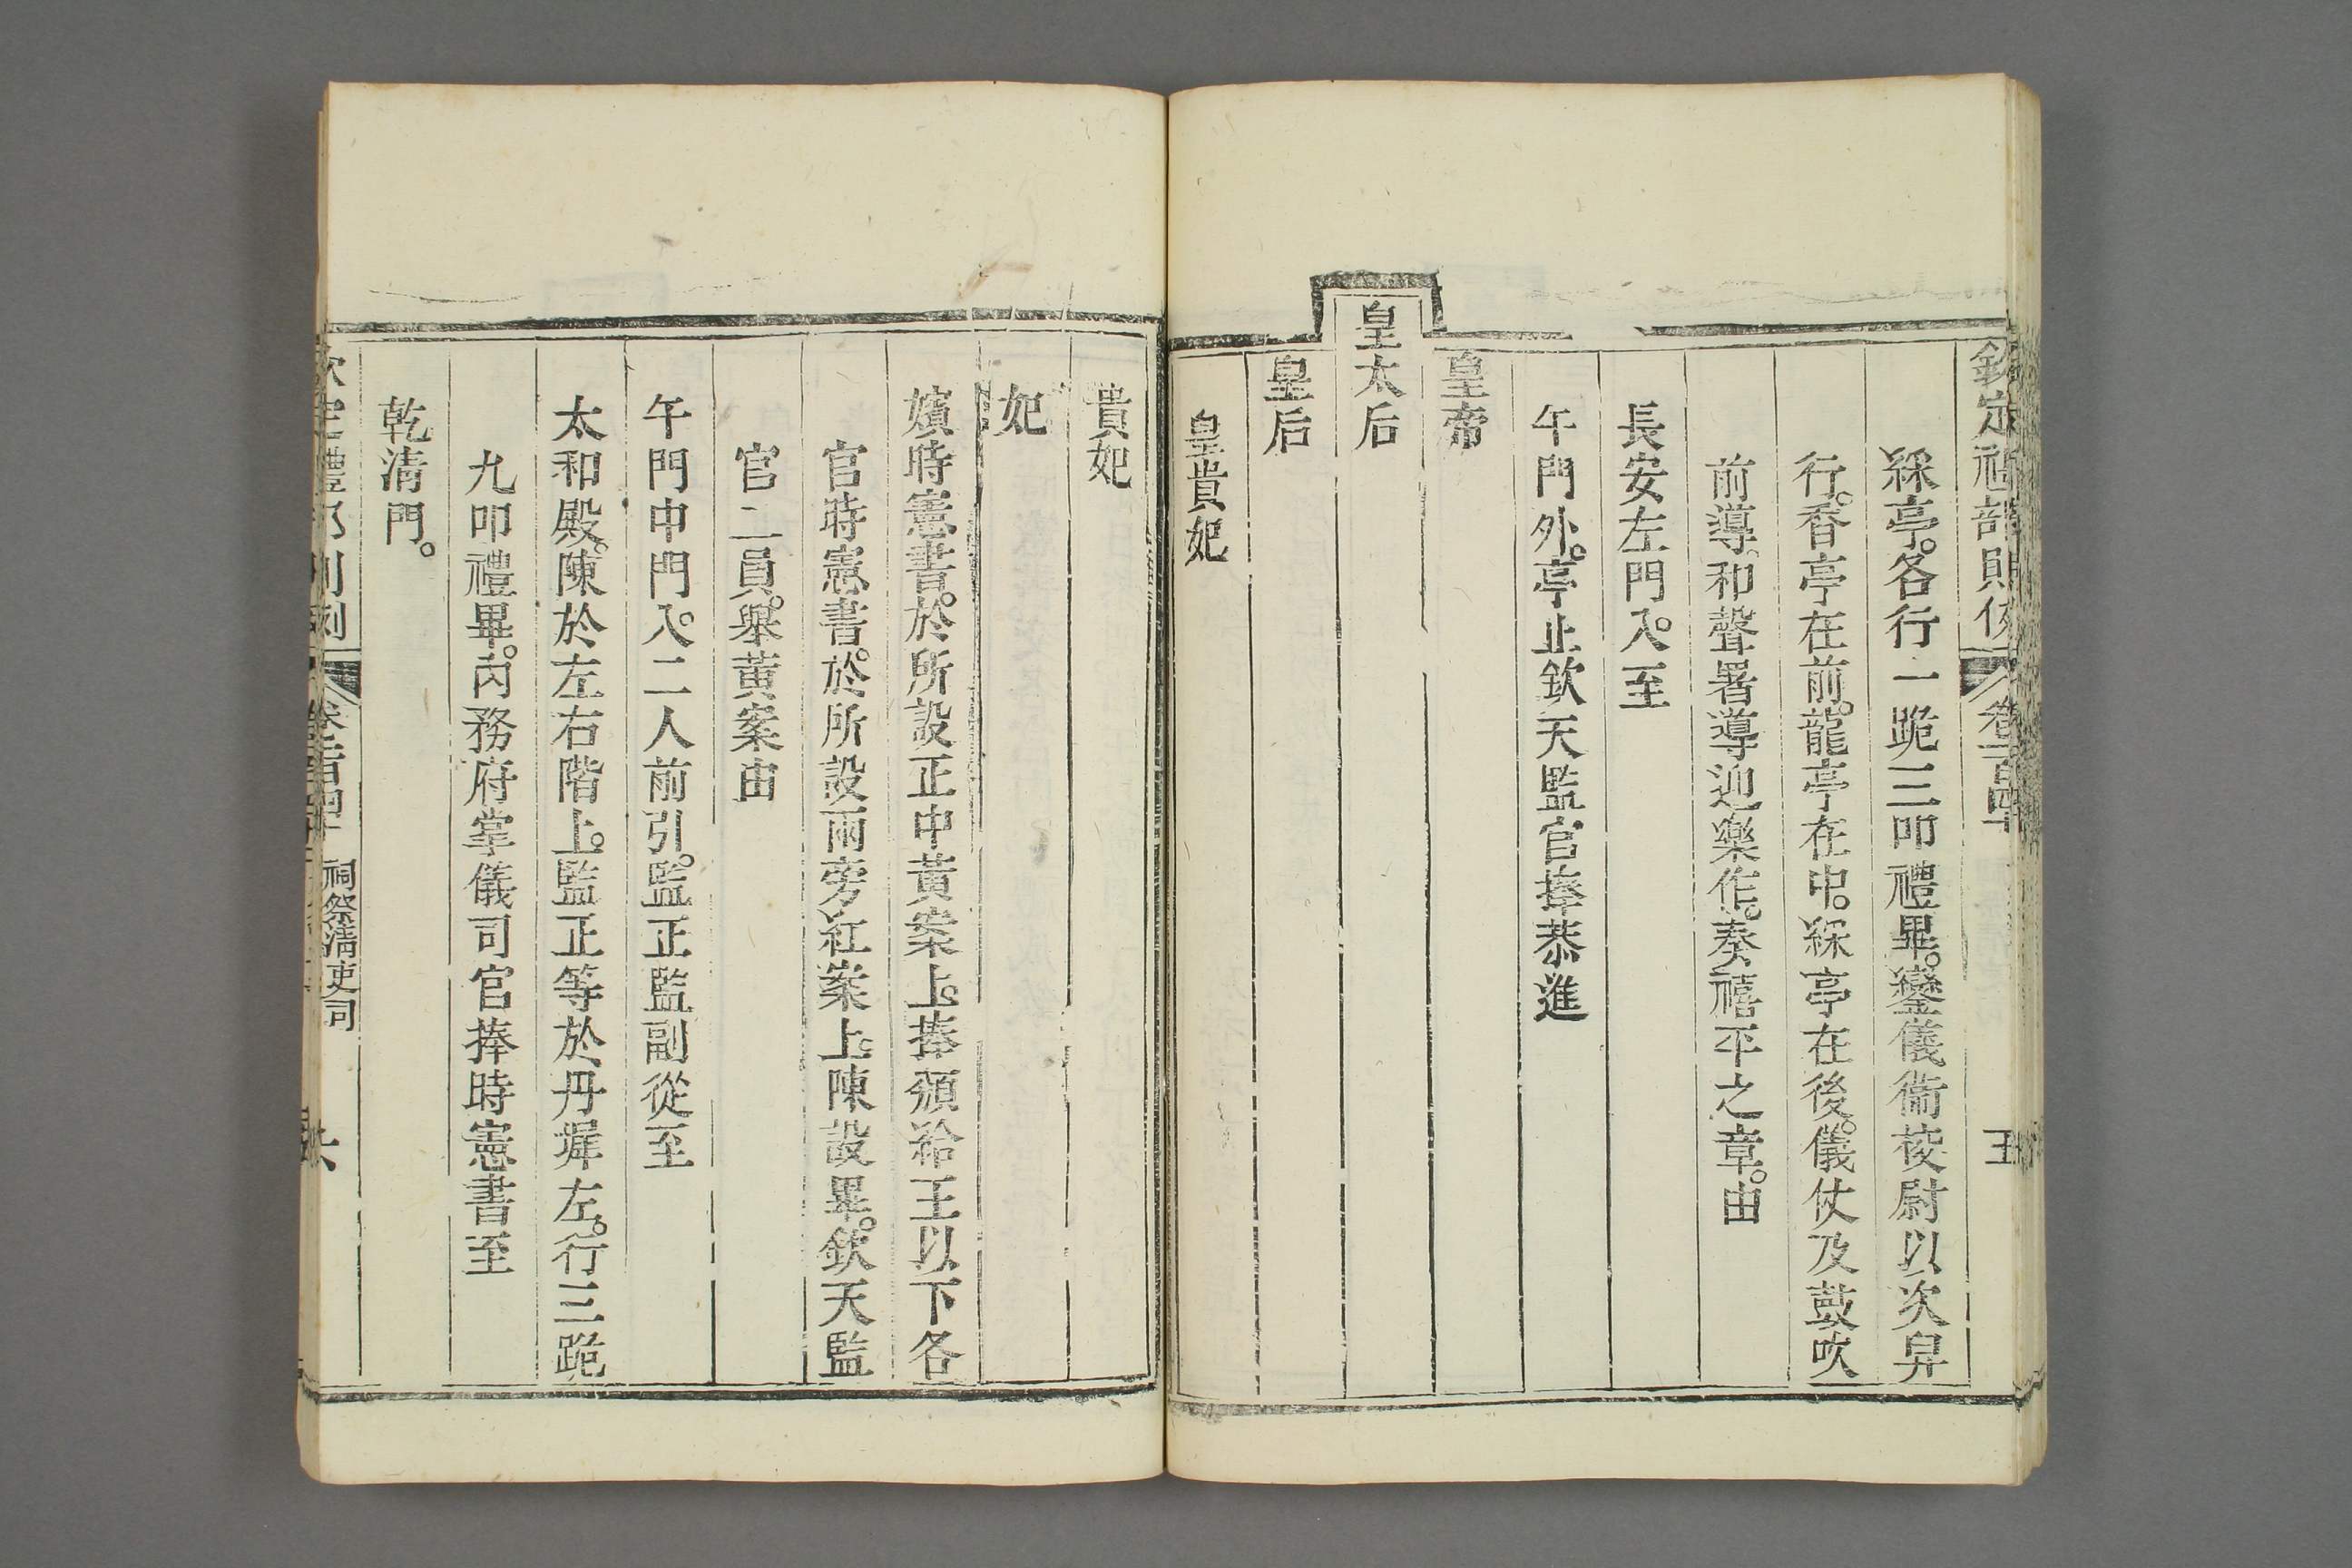 欽定禮部則例
卷一百四十
五
綵亭。各行一跪三叩禮畢。鑾儀衞校尉以次舁
行。香亭在前。龍亭在中。綵亭在後。儀仗及鼓吹
前導。和聲署導迎樂作。奏禧平之章。由
長安左門入。至
午門外。亭止欽天監官捧恭進
皇帝
皇太后
皇后
皇貴妃
貴妃
妃
嬪時憲書。於所設正中黃案上。捧頒給王以下各
官時憲書。於所設兩旁紅案上。陳設畢。欽天監
官二員。舉黃案由
午門中門入。二人前引。監正監副從至
太和殿。陳於左右階上。監正等於丹墀左。行三跪
九叩禮畢。內務府掌儀司官捧時憲書至
乾清門。
欽定禮部則例
卷一百四十
祠祭清吏司
六